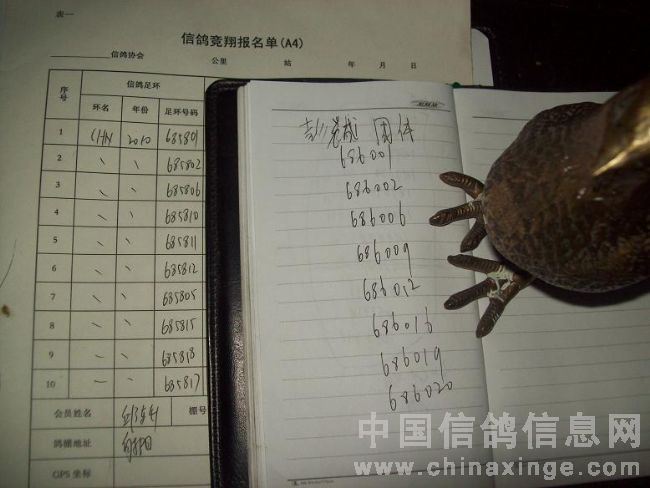 表一
信鸽竞翔报名单(A4)
信鸽协会 公里 站 年 月 日
序号 信鸽足环
环名 年份 足环号码
1 CHN 2010 685801
2 、 、 685802
3 、 、 685806
4 、 、 685810
5 、 、 685811
6 、 、 685812
7 、 、 685805
8 、 、 685815
9 、 、 685818
10 — 、 685817
会员姓名 棚号
鸽棚地址
GPS 坐标
团体
686001
686002
686006
686009
686012
686016
686019
686020
中国信鸽信息网
www.chinaxinge.com